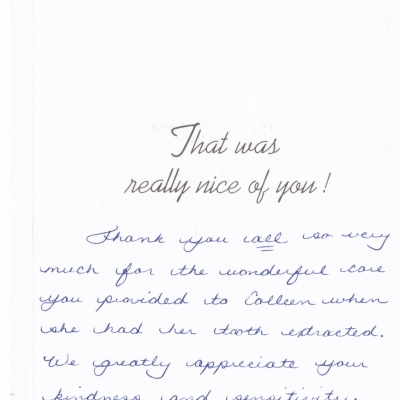 That was
really nice of you!
Thank you all so very
much for the wonderful care
you provided to Colleen when
she had her tooth extracted.
We greatly appreciate your
kindness and sensitivity.